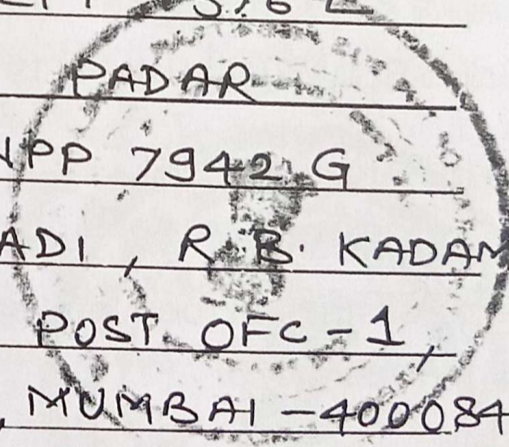 PADAR
PP 7942 G
ADI, R. B. KADAM
POST OFC-1,
, MUMBAI-400084